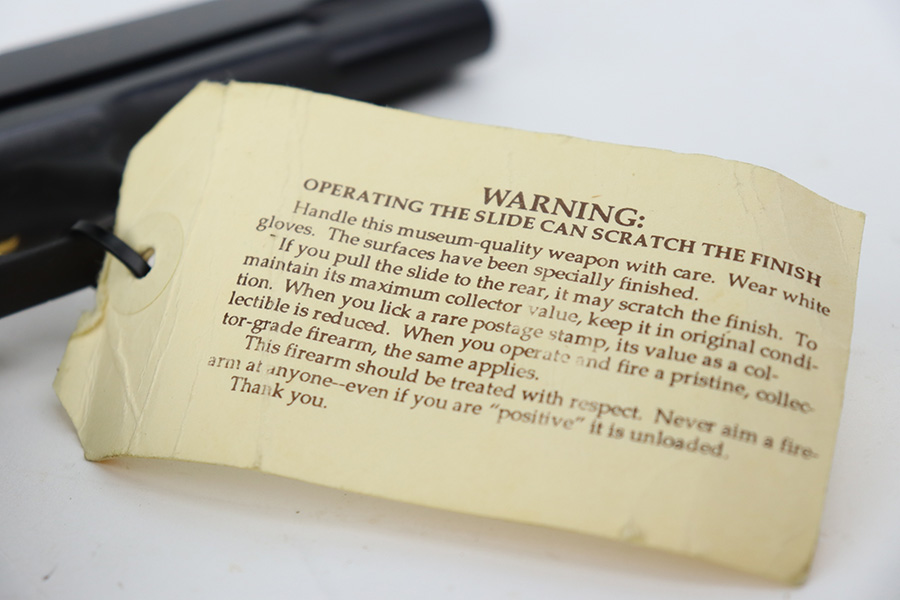 WARNING:
OPERATING THE SLIDE CAN SCRATCH THE FINISH
Handle this museum-quality weapon with care. Wear white
gloves. The surfaces have been specially finished.
If you pull the slide to the rear, it may scratch the finish. To
maintain its maximum collector value, keep it in original condi-
tion. When you lick a rare postage stamp, its value as a col-
lectible is reduced. When you operate and fire a pristine, collec-
tor-grade firearm, the same applies.
This firearm should be treated with respect. Never aim a fire-
arm at anyone--even if you are "positive" it is unloaded.
Thank you.